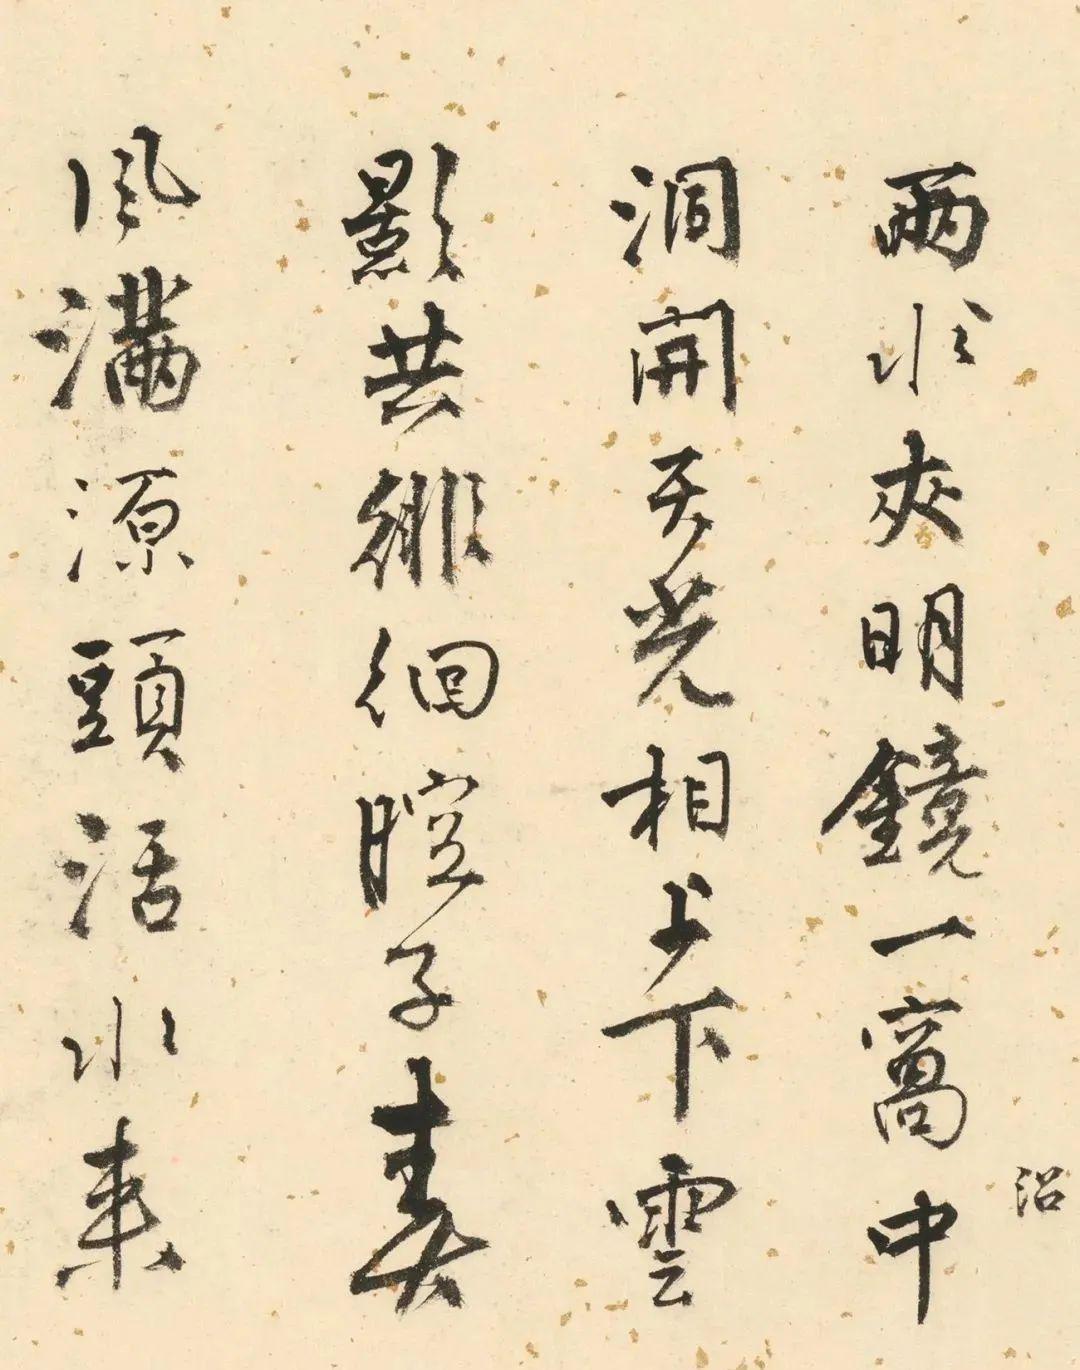 沼
兩水夾明鏡一窩中
洞開天光相上下雲
影共徘徊暄子春
風滿源頭活水來